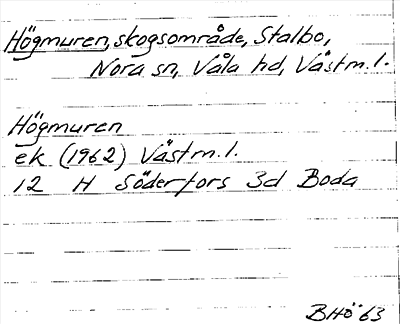 Högmuren, skogsområde, Stalbo,
Nora sn, Våla hd, Västm.l.
Högmuren
ek (1962) Västm.l.
12 H Söderfors 3d Boda
BHö 63